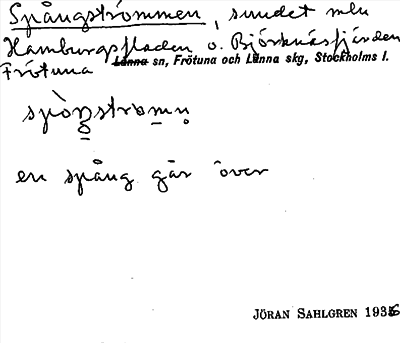 Spångströmmen, sundet mln
Hamburgsfladen o. Björknäsfjärden
Frötuna L̶ä̶n̶n̶a̶ sn, Frötuna och Länna skg, Stockholms l.
spòŋström̥n̥
en spång går över
JÖRAN SAHLGREN 1936